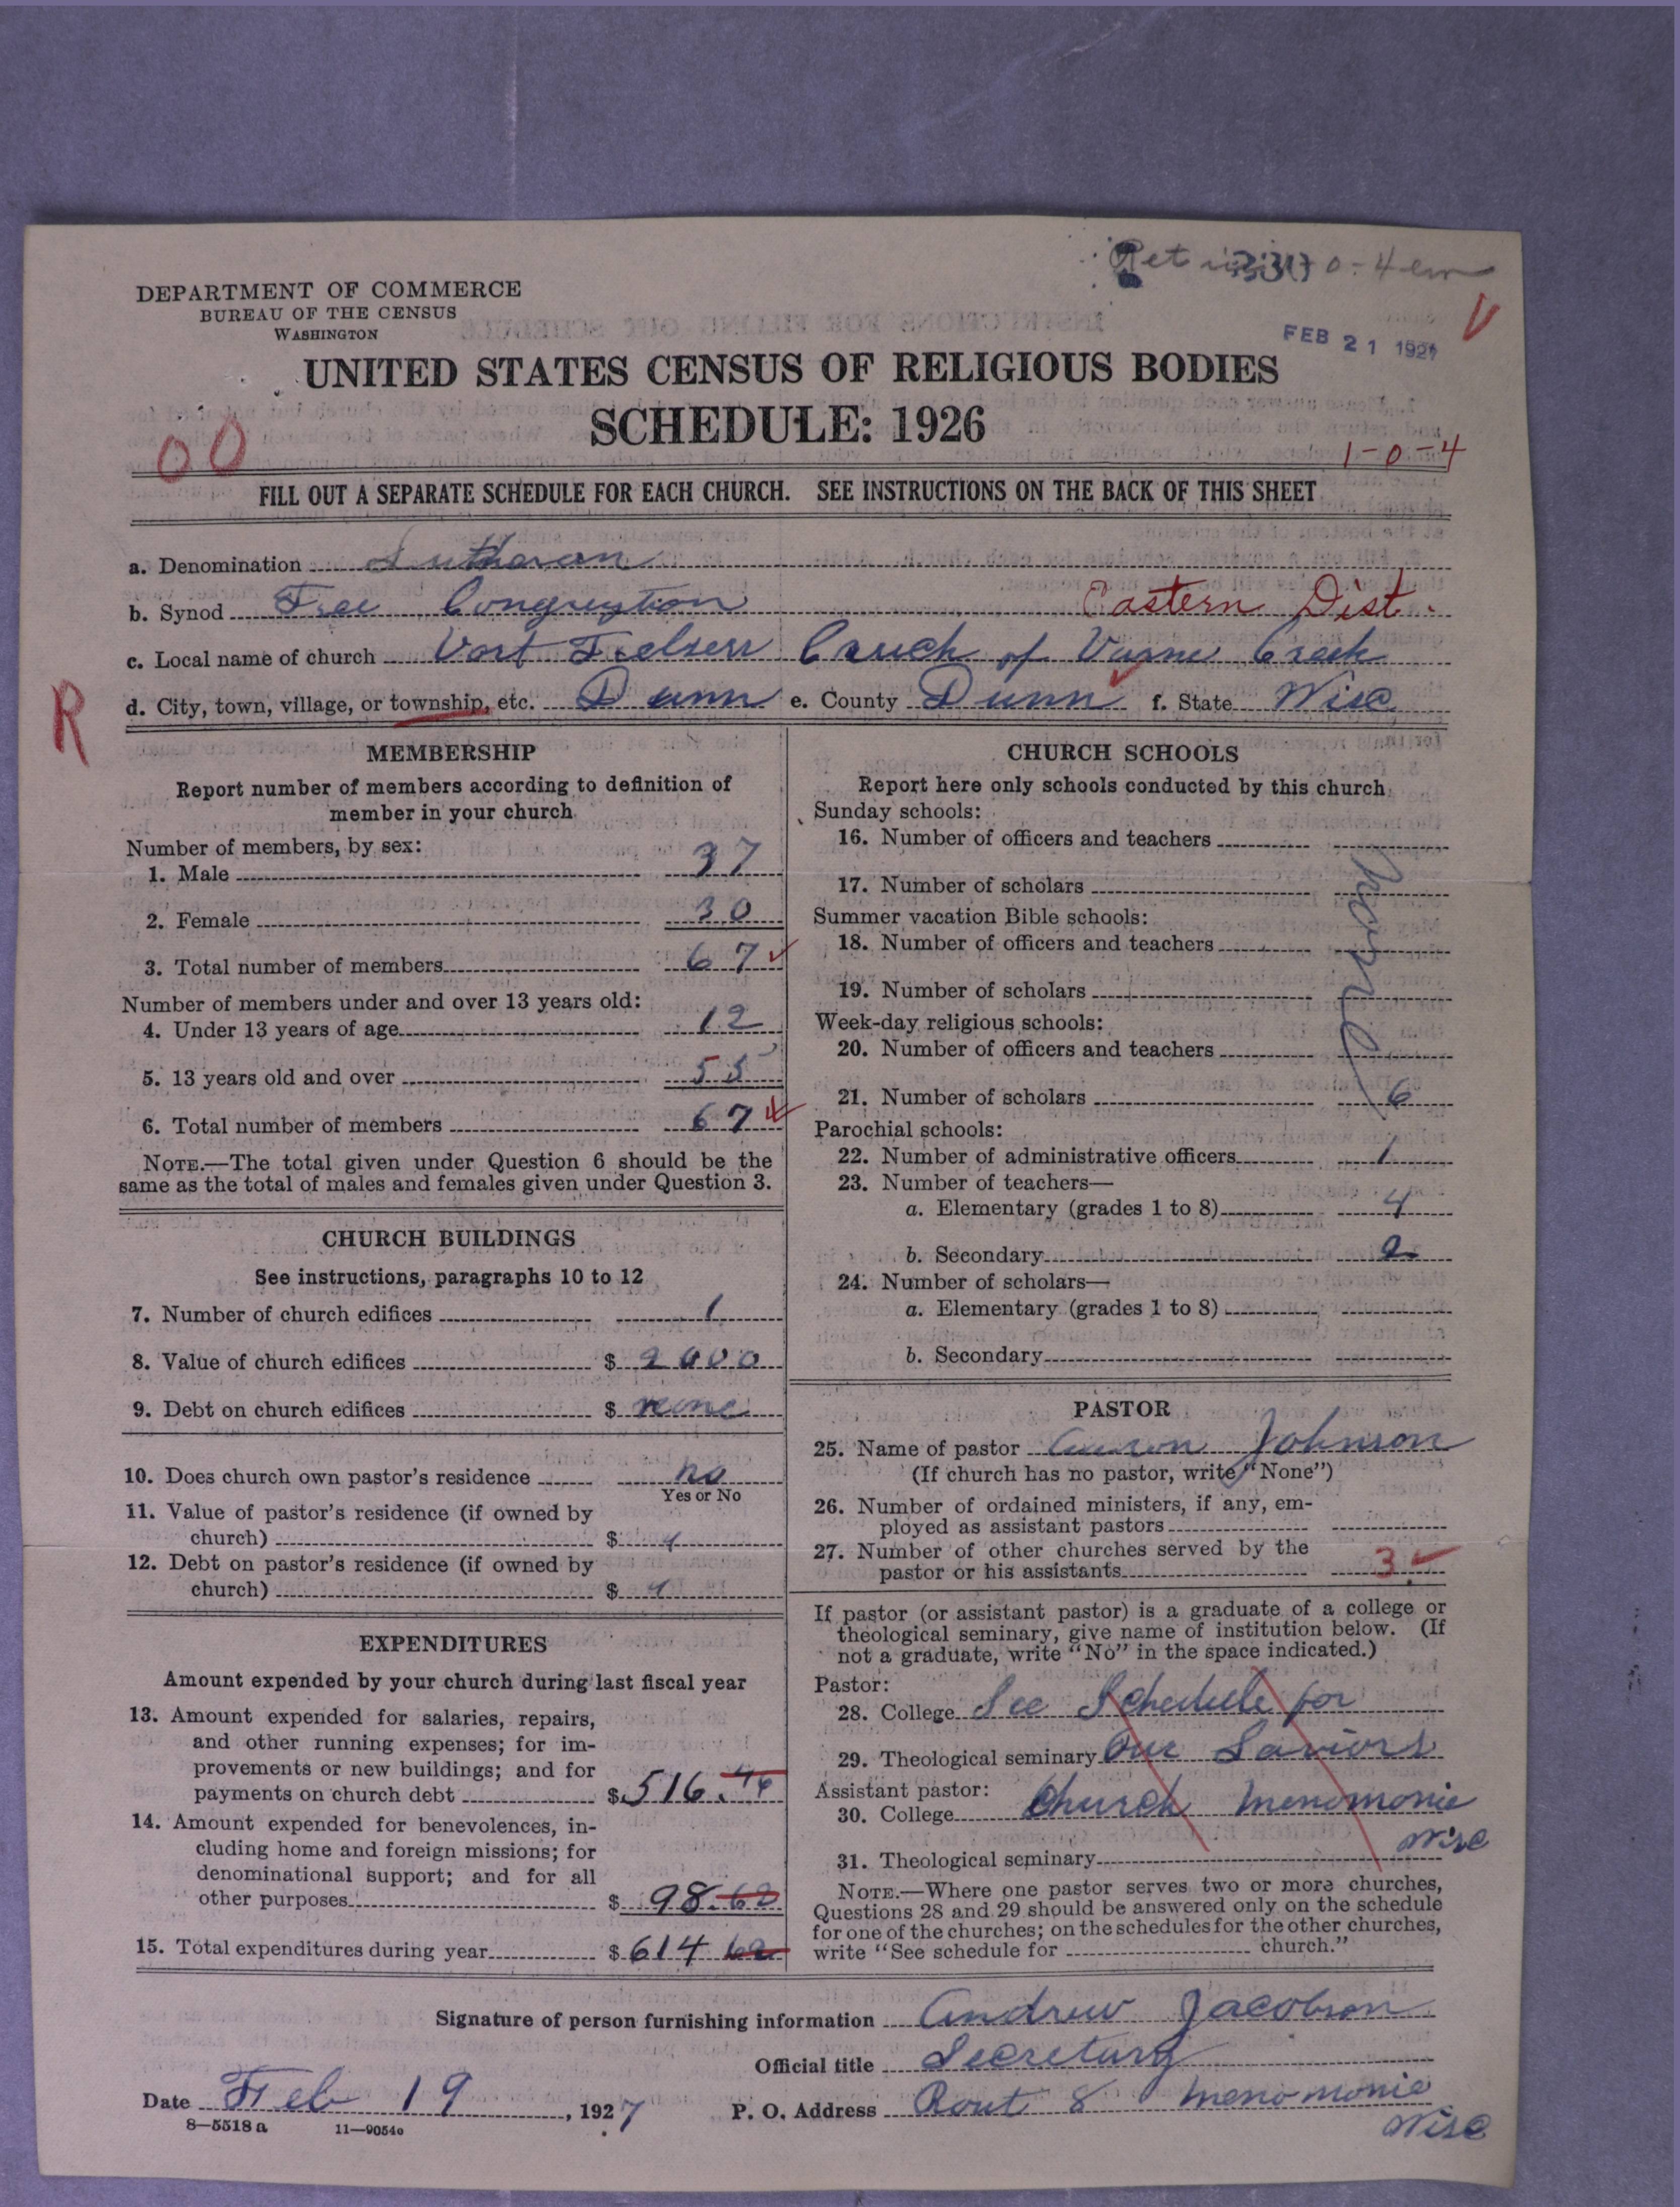 Ret 0-4 em
DEPARTMENT OF COMMERCE
BUREAU OF THE CENSUS
WASHINGTON
FEB 21 1927
V
UNITED STATES CENSUS OF RELIGIOUS BODIES
SCHEDULE: 1926
00
1-0-4
FILL OUT A SEPARATE SCHEDULE FOR EACH CHURCH. SEE INSTRUCTIONS ON THE BACK OF THIS SHEET
a. Denomination Lutharan
b. Synod Free Congregtion Eastern Dist.
c. Local name of church Vort Frelserr Cruch of Varne Creek
R
d. City, town, village, or township, etc. Dunn e. County Dunn f. State Wisc
MEMBERSHIP
Report number of members according to definition of
member in your church
Number of members, by sex:
1. Male 37
2. Female 30
3. Total number of members 67
Number of members under and over 13 years old:
4. Under 13 years of age 12
5. 13 years old and over 55
6. Total number of members 67
NOTE.—The total given under Question 6 should be the
same as the total of males and females given under Question 3.
CHURCH BUILDINGS
See instructions, paragraphs 10 to 12
7. Number of church edifices 1
8. Value of church edifices $ 2000
9. Debt on church edifices $ none
10. Does church own pastor's residence no
Yes or No
11. Value of pastor's residence (if owned by
church) $
12. Debt on pastor's residence (if owned by
church) $
EXPENDITURES
Amount expended by your church during last fiscal year
13. Amount expended for salaries, repairs,
and other running expenses; for im-
provements or new buildings; and for
payments on church debt $ 516.
14. Amount expended for benevolences, in-
cluding home and foreign missions; for
denominational support; and for all
other purposes $ 98.62
15. Total expenditures during year $ 614 62
CHURCH SCHOOLS
Report here only schools conducted by this church
Sunday schools:
16. Number of officers and teachers
17. Number of scholars
Summer vacation Bible schools:
18. Number of officers and teachers
19. Number of scholars
Week-day religious schools:
20. Number of officers and teachers
21. Number of scholars 6
Parochial schools:
22. Number of administrative officers 1
23. Number of teachers—
a. Elementary (grades 1 to 8) 4
b. Secondary 2
24. Number of scholars—
a. Elementary (grades 1 to 8)
b. Secondary
PASTOR
25. Name of pastor Johnson
(If church has no pastor, write "None")
26. Number of ordained ministers, if any, em-
ployed as assistant pastors
27. Number of other churches served by the
pastor or his assistants 3
If pastor (or assistant pastor) is a graduate of a college or
theological seminary, give name of institution below. (If
not a graduate, write "No" in the space indicated.)
Pastor:
28. College See Schedule for
29. Theological seminary Our Saviors
Assistant pastor:
30. College Church Menomonie
Wisc
31. Theological seminary
NOTE.—Where one pastor serves two or more churches,
Questions 28 and 29 should be answered only on the schedule
for one of the churches; on the schedules for the other churches,
write "See schedule for church."
Signature of person furnishing information Andrew Jacobson
Official title Secretury
Date Feb 19, 1927 P. O. Address Rout 8 Menomonie
Wisc
8—5518 a 11—9054o